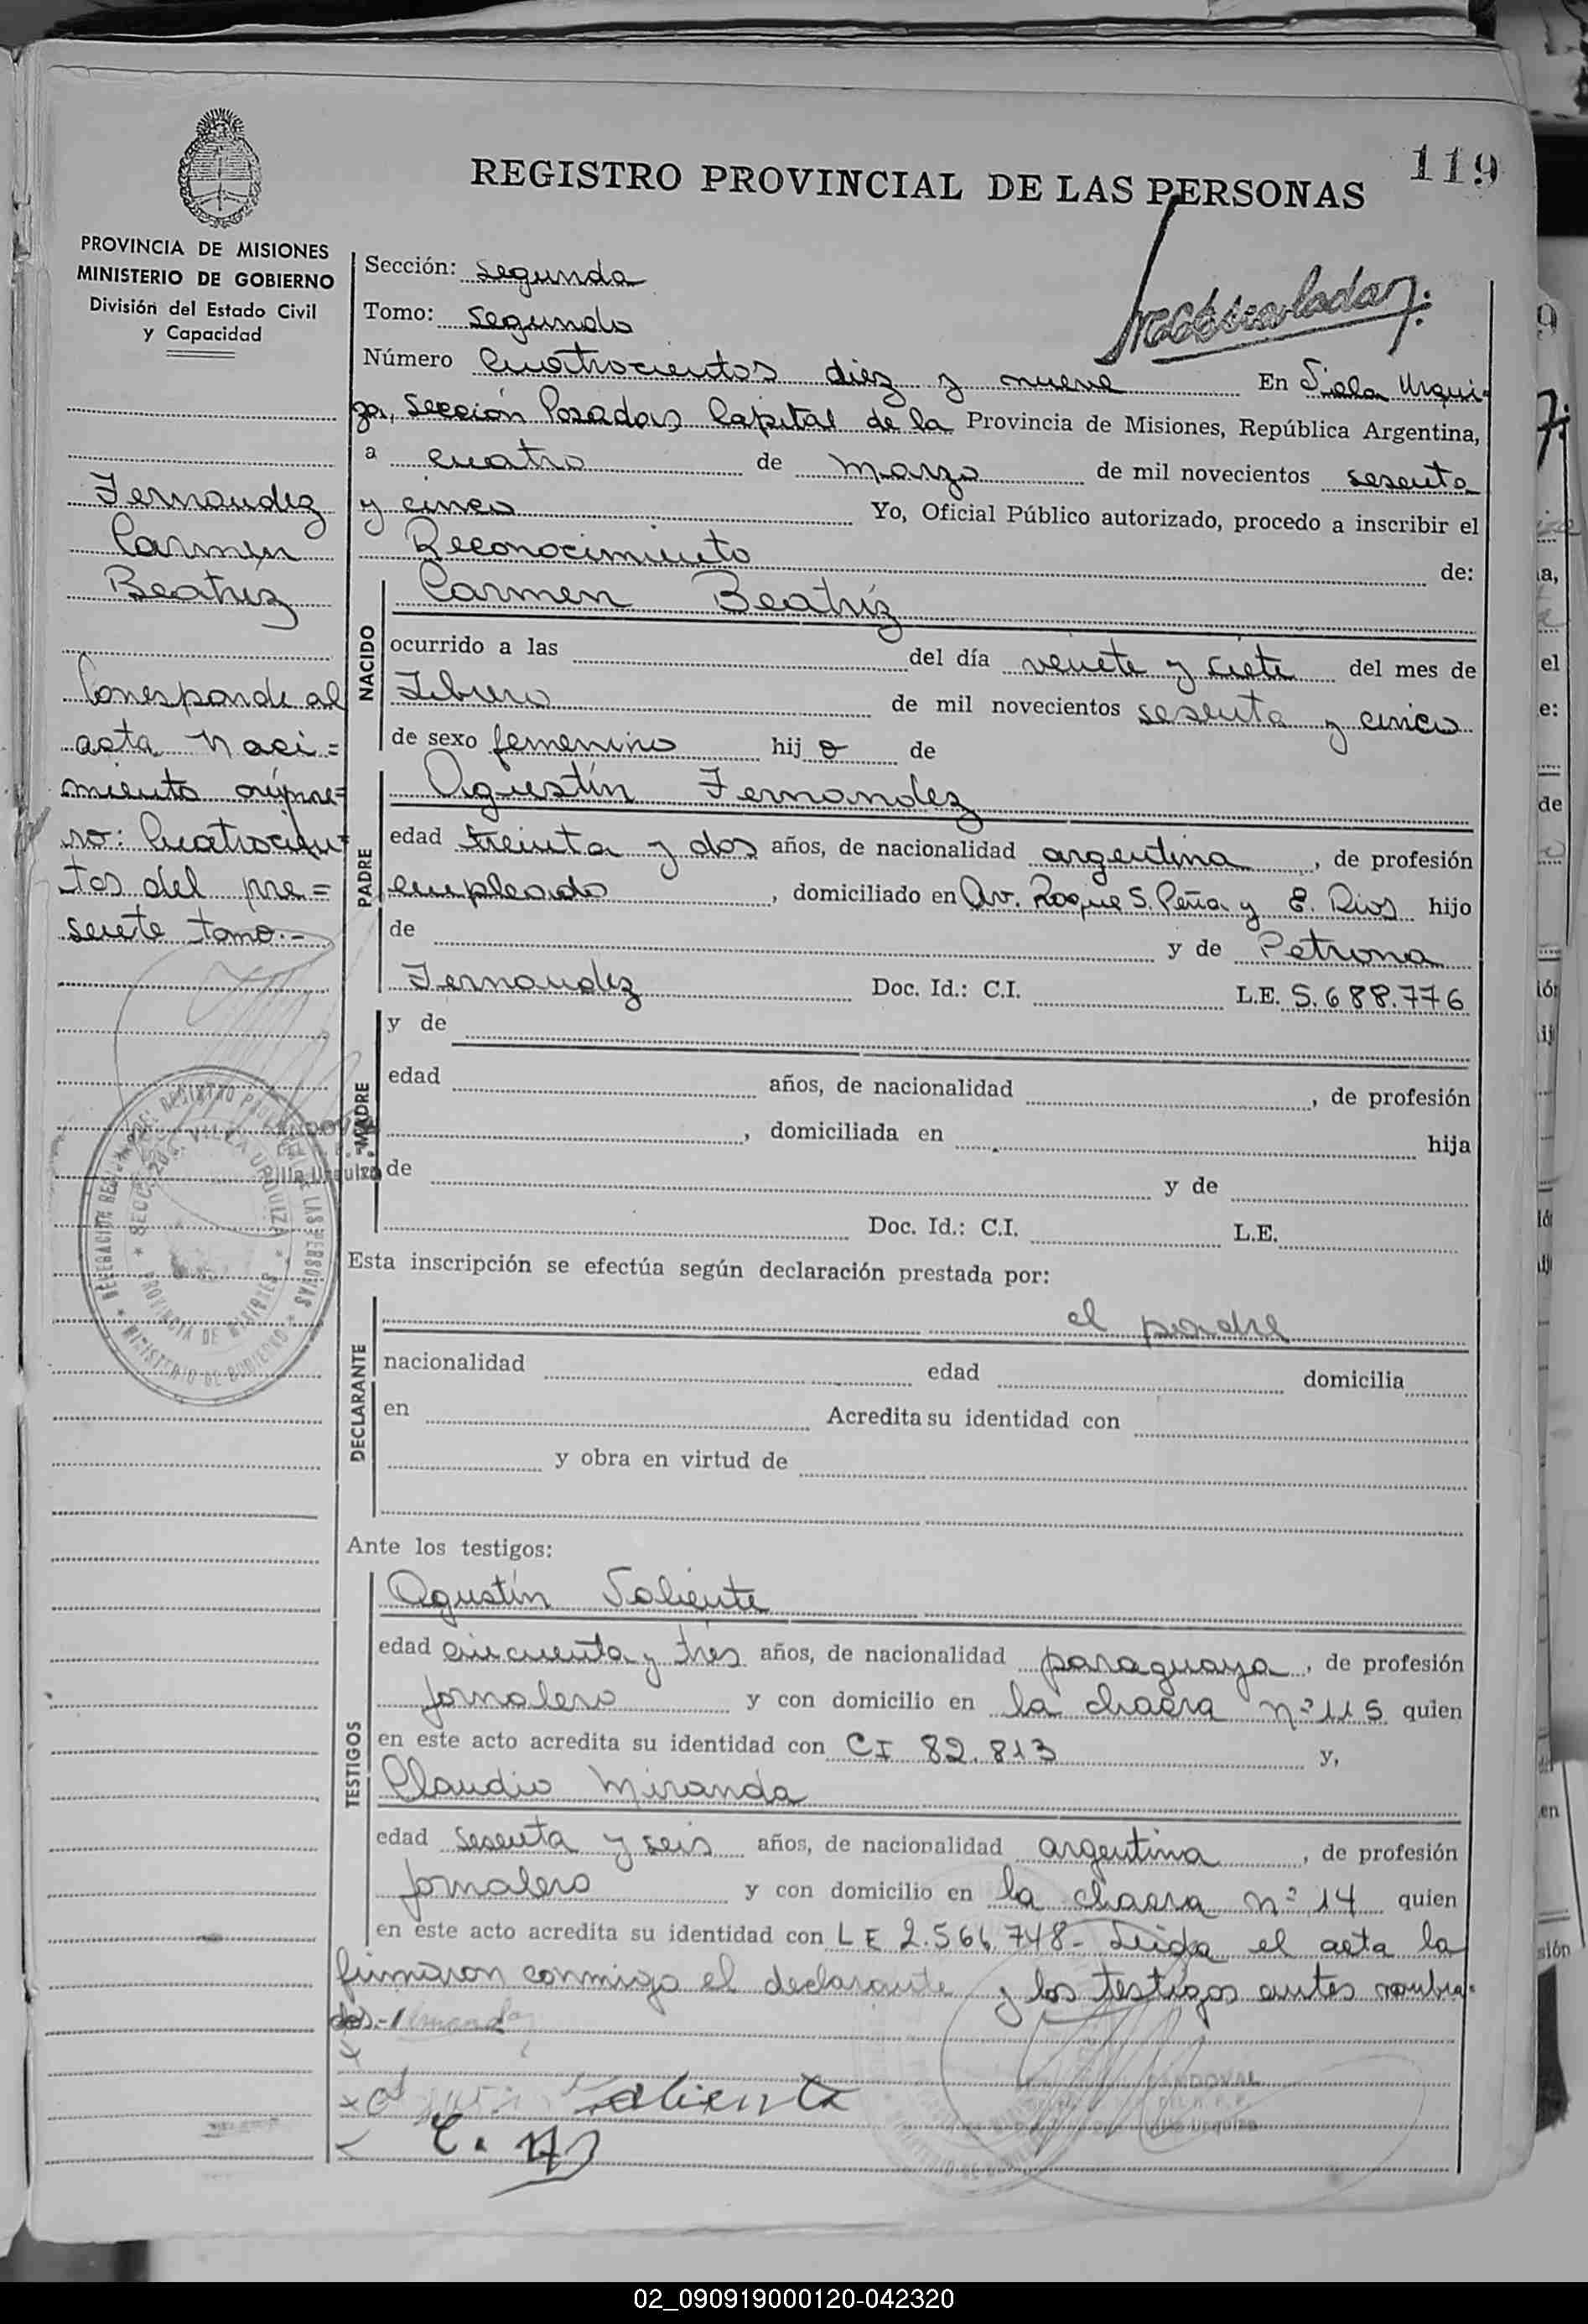 119
REGISTRO PROVINCIAL DE LAS PERSONAS
PROVINCIA DE MISIONES
MINISTERIO DE GOBIERNO
División del Estado Civil
y Capacidad
Fernandez
Carmen
Beatriz
Corresponde al
acta naci=
miento núme=
ro: Cuatrocien=
tos del pre=
sente tomo.-
Sección: segunda
Tomo: segundo
Número Cuatrocientos diez y nueve En Villa Urqui-
za, Sección Posadas Capital de la Provincia de Misiones, República Argentina,
a cuatro de marzo de mil novecientos sesenta
y cinco Yo, Oficial Público autorizado, procedo a inscribir el
Reconocimiento de:
NACIDO
Carmen Beatríz
ocurrido a las del día veinte y siete del mes de
Febrero de mil novecientos sesenta y cinco
de sexo femenino hij a de
PADRE
Agustín Fernandez
edad treinta y dos años, de nacionalidad argentina, de profesión
empleado, domiciliado en Av. Roque S. Peña y E. Rios hijo
de y de Petrona
Fernandez Doc. Id.: C.I. L.E. 5.688.776
MADRE
y de
edad años, de nacionalidad , de profesión
, domiciliada en hija
de y de
Doc. Id.: C.I. L.E.
Esta inscripción se efectúa según declaración prestada por:
DECLARANTE
el padre
nacionalidad edad domicilia
en Acredita su identidad con
y obra en virtud de
Ante los testigos:
TESTIGOS
Agustín Valiente
edad cincuenta y tres años, de nacionalidad paraguaya, de profesión
jornalero y con domicilio en la chacra nº 115 quien
en este acto acredita su identidad con CI 82.813 y,
Claudio Miranda
edad sesenta y seis años, de nacionalidad argentina, de profesión
jornalero y con domicilio en la chacra nº 14 quien
en este acto acredita su identidad con LE 2.566.748- Leida el acta la
firmaron conmigo el declarante y los testigos antes nombra-
dos.-
Valiente
C. M
SANDOVAL
Villa Urquiza
REGISTRO PROVINCIAL DE LAS PERSONAS
VILLA URQUIZA
PROVINCIA DE MISIONES
MINISTERIO DE GOBIERNO
02_090919000120-042320